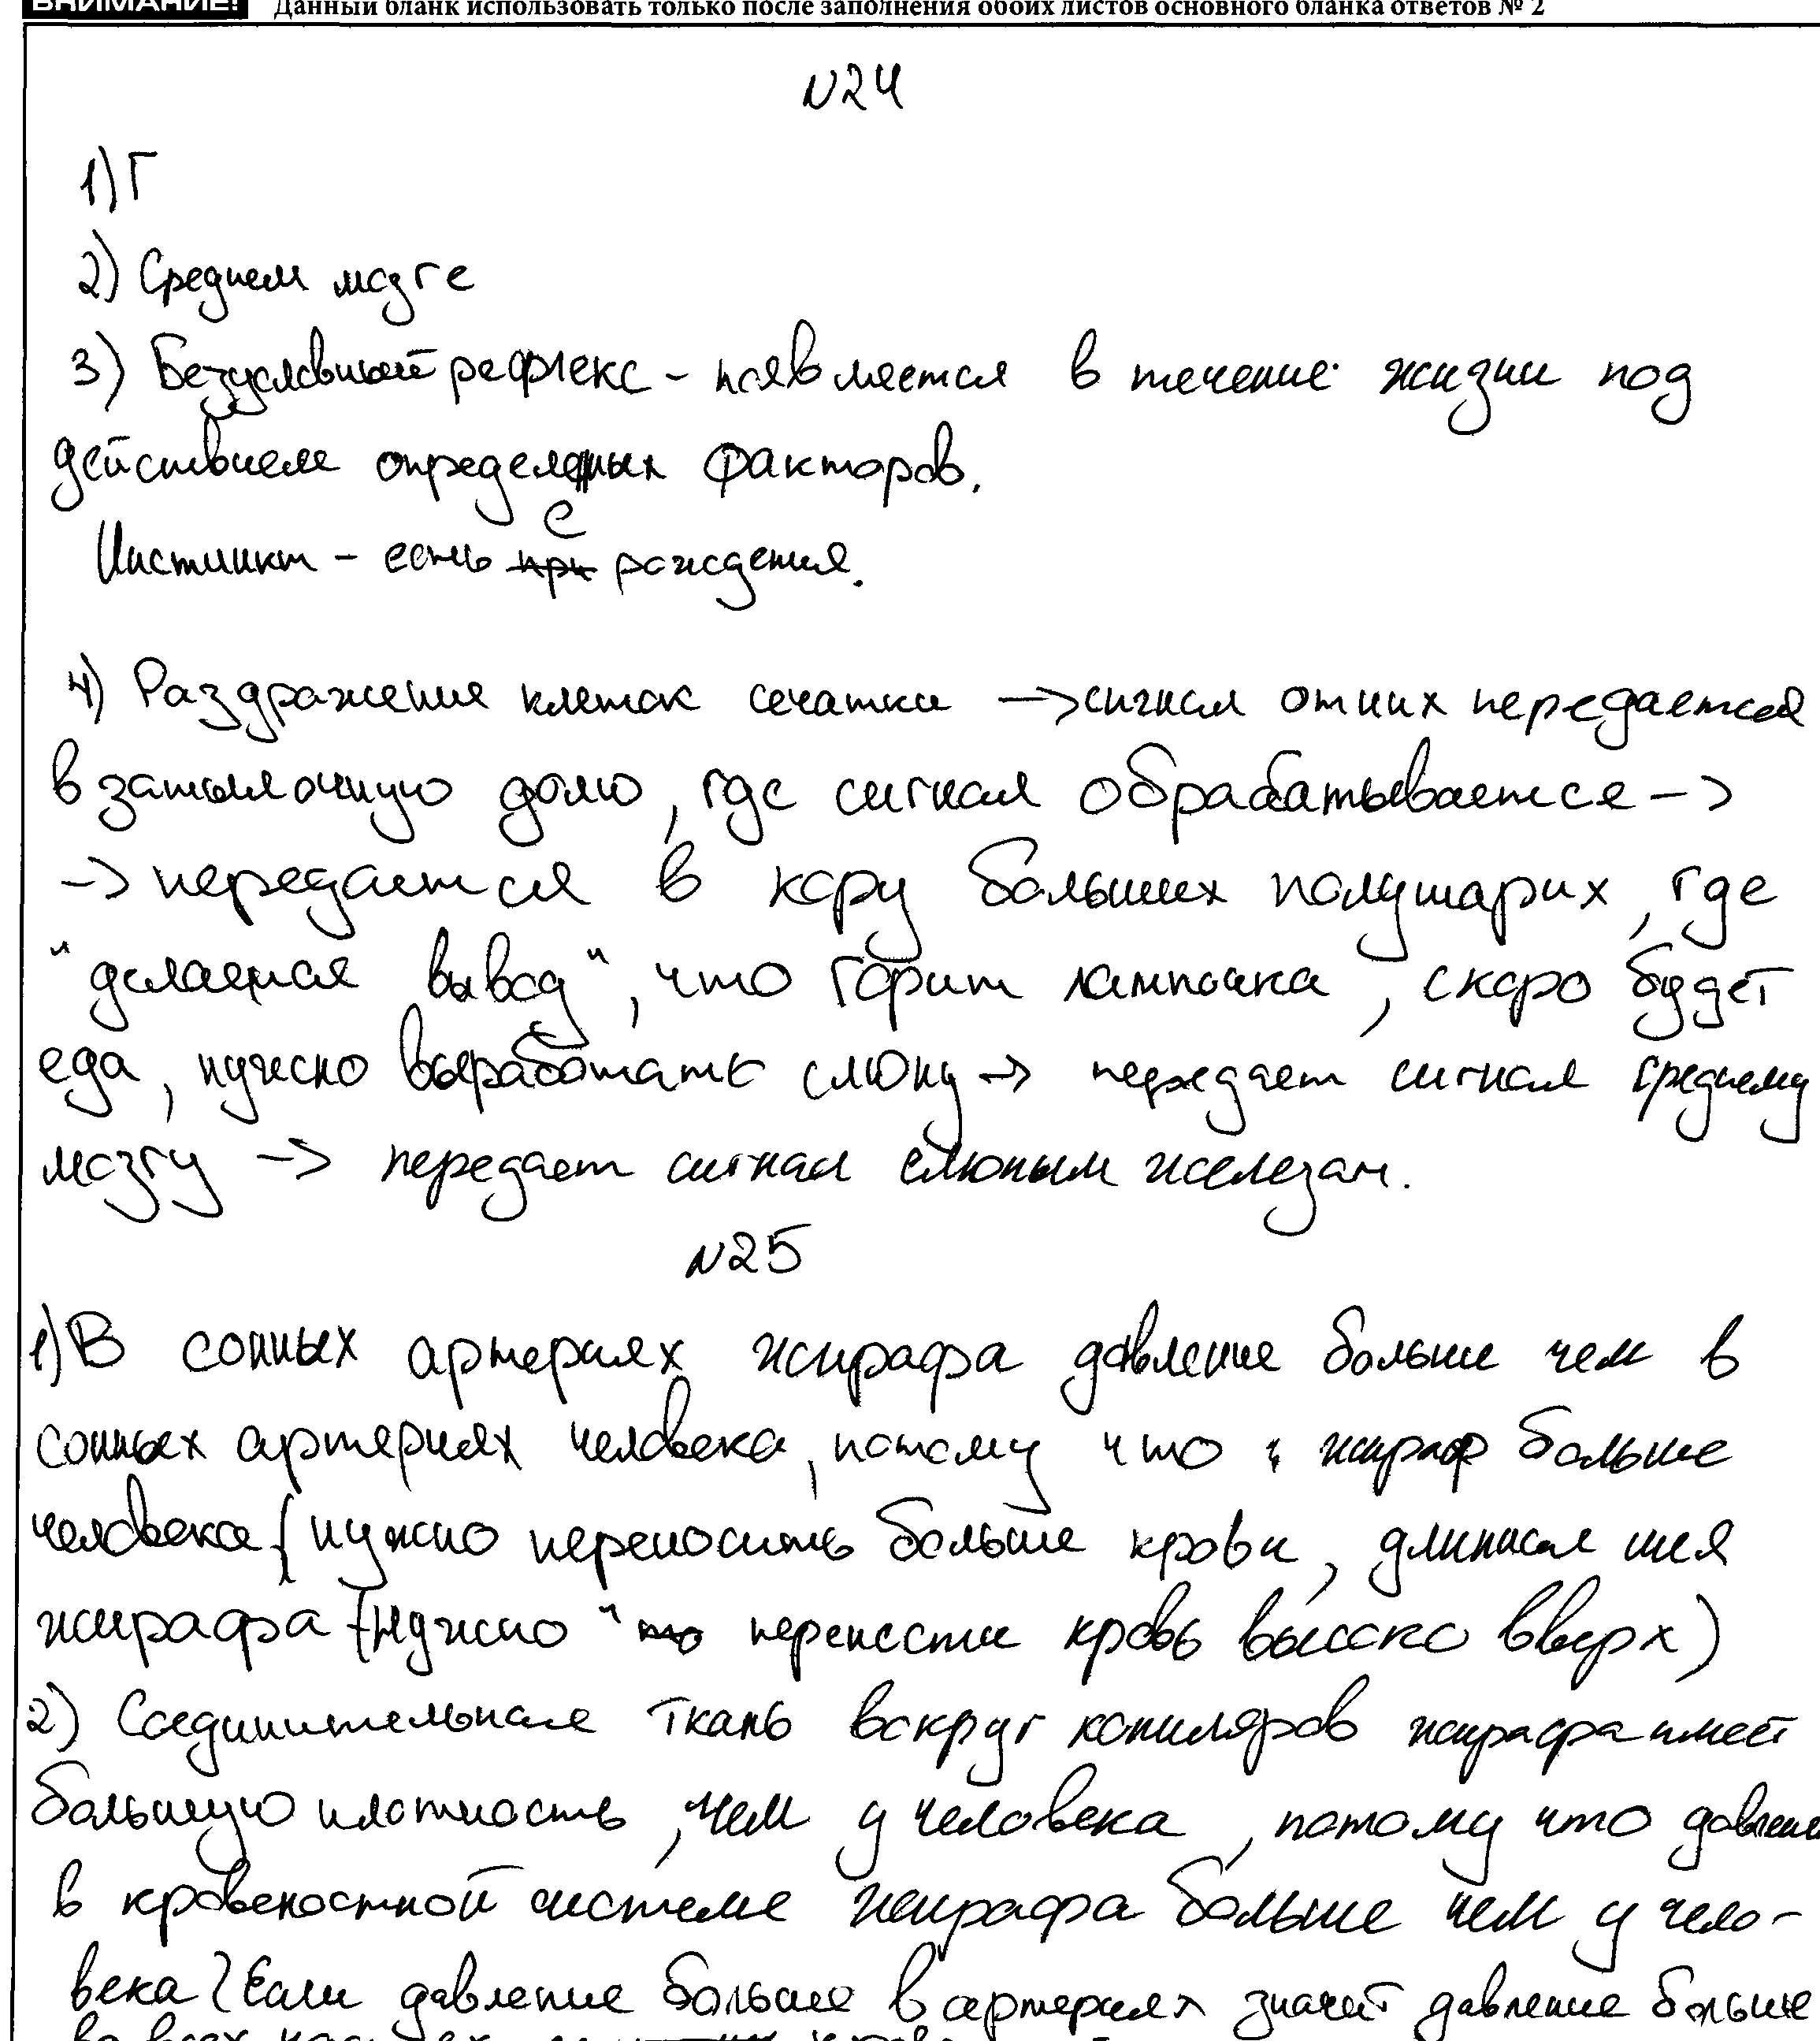 ВНИМАНИЕ! Данный бланк использовать только после заполнения обоих листов основного бланка ответов № 2
№24
1) Г
2) Среднем мозге
3) Безусловный рефлекс - появляется в течение жизни под
действием определеных факторов.
Инстинкт - есть с рождения.
4) Раздражение клеток сечатки -> сигнал от них передается
в затылочную долю, где сигнал обрабатывается ->
-> передается в кору больших полушарих, где
"делается вывод", что горит лампочка, скоро будет
еда, нужно выработать слюну -> передает сигнал среднему
мозгу -> передает сигнал слюным железам.
№25
1) В сонных артериях жирафа давление больше чем в
сонных артериях человека, потому что жираф больше
человека (нужно переносить больше крови, длинная шея
жирафа (Нужно перенести кровь высоко вверх)
2) Соединительная ткань вокруг капиляров жирафа имеет
большую плотность, чем у человека, потому что давление
в кровеностной системе жирафа больше чем у чело-
века (Если давление больше в артериях значит давление больше
во всех